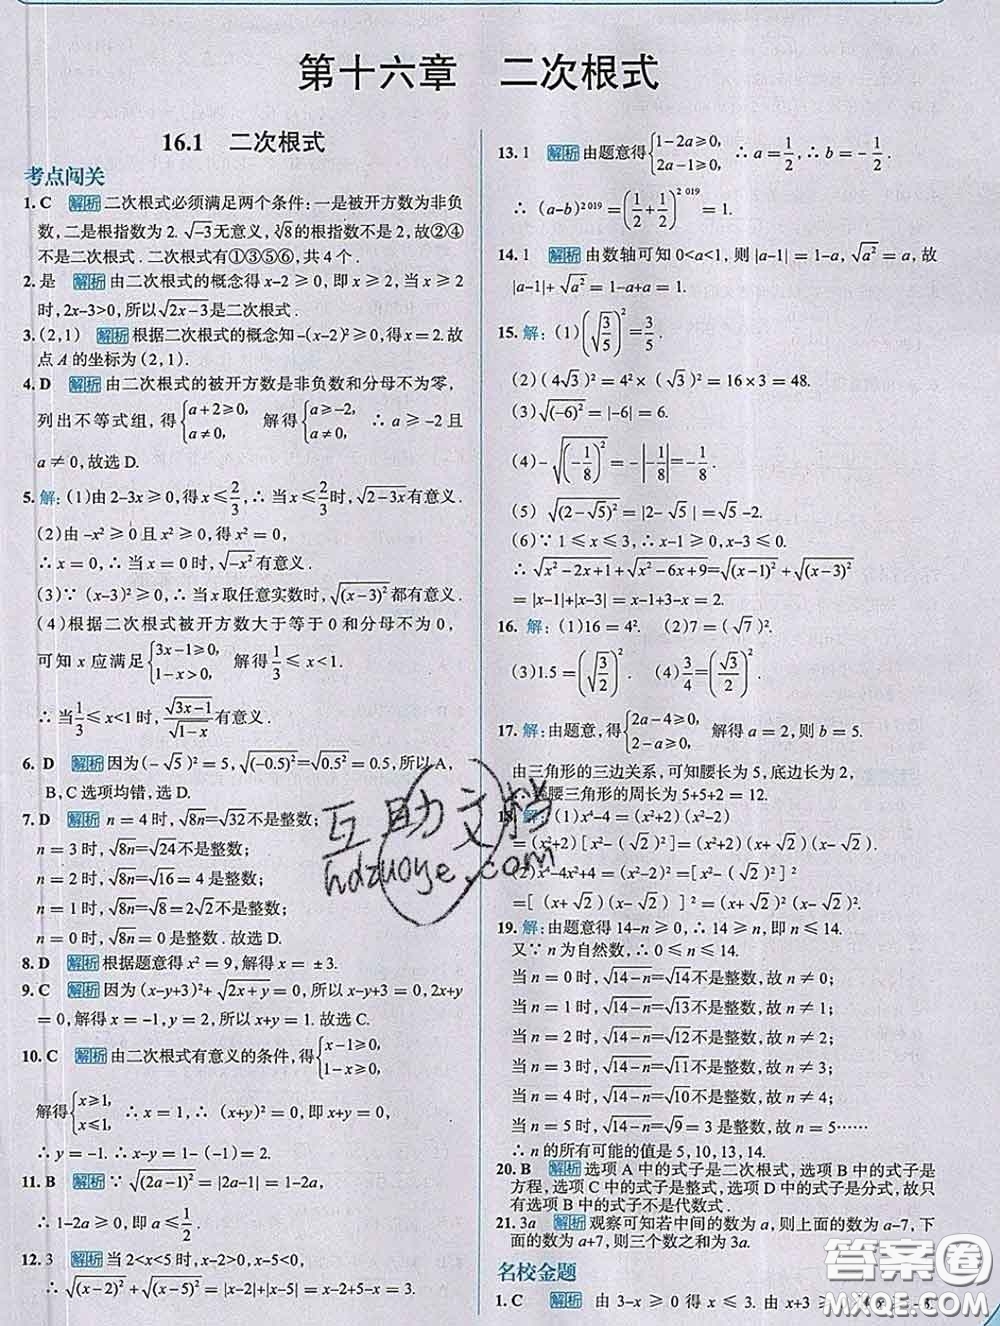 第十六章 二次根式
16.1 二次根式
考点闯关
1. C 解析 二次根式必须满足两个条件:一是被开方数为非负
数,二是根指数为 2. √-3无意义,∛8的根指数不是 2,故②④
不是二次根式. 二次根式有①③⑤⑥,共 4 个.
2. 是 解析 由二次根式的概念得 x-2≥0,即 x≥2,当 x≥2
时,2x-3>0,所以√2x-3是二次根式.
3. (2,1) 解析 根据二次根式的概念知-(x-2)²≥0,得 x=2. 故
点 A 的坐标为(2,1).
4. D 解析 由二次根式的被开方数是非负数和分母不为零,
列出不等式组,得{a+2≥0, a≠0, 解得{a≥-2, a≠0, ∴ a≥-2 且
a≠0,故选 D.
5. 解:(1)由 2-3x≥0,得 x≤2/3,∴ 当 x≤2/3时,√2-3x有意义.
(2)由 -x²≥0 且 x²≥0,得 x²=0,
∴ x=0,∴ 当 x=0 时,√-x²有意义.
(3)∵ (x-3)²≥0,∴ 当 x 取任意实数时,√(x-3)²都有意义.
(4)根据二次根式被开方数大于等于 0 和分母不为 0,
可知 x 应满足{3x-1≥0, 1-x>0, 解得1/3≤x<1.
∴ 当1/3≤x<1时,√3x-1/√1-x有意义.
6. D 解析 因为(-√5)²=5,√(-0.5)²=√0.5²=0.5,所以 A,
B,C 选项均错,选 D.
7. D 解析 n=4 时,√8n=√32不是整数;
n=3 时,√8n=√24不是整数;
n=2 时,√8n=√16=4 是整数;
n=1 时,√8n=√8=2√2不是整数;
n=0 时,√8n=0 是整数. 故选 D.
8. D 解析 根据题意得 x²=9,解得 x=±3.
9. C 解析 因为(x-y+3)²+√2x+y=0,所以 x-y+3=0,2x+y
=0,解得 x=-1,y=2,所以 x+y=1. 故选 C.
10. C 解析 由二次根式有意义的条件,得{x-1≥0, 1-x≥0,
解得{x≥1, x≤1, ∴ x=1,∴ (x+y)²=0,即 x+y=0,
∴ y=-1. ∴ x-y=1-(-1)=2.
11. B 解析 ∵ √(2a-1)²=|2a-1|=1-2a,
∴ 1-2a≥0,即 a≤1/2.
12. 3 解析 当 2<x<5 时,x-2>0,x-5<0,
∴ √(x-2)²+√(x-5)²=|x-2|+|x-5|=x-2+5-x=3.
13. 1 解析 由题意得{1-2a≥0, 2a-1≥0, ∴ a=1/2,∴ b=-1/2.
∴ (a-b)²⁰¹⁹=(1/2+1/2)²⁰¹⁹=1.
14. 1 解析 由数轴可知 0<a<1,则 |a-1|=1-a,√a²=a,故
|a-1|+√a²=1-a+a=1.
15. 解:(1)(√3/5)²=3/5.
(2)(4√3)²=4²×(√3)²=16×3=48.
(3)√(-6)²=|-6|=6.
(4)-√(-1/8)²=-|-1/8|=-1/8.
(5)√(2-√5)²=|2-√5|=√5-2.
(6)∵ 1≤x≤3,∴ x-1≥0,x-3≤0.
∴ √x²-2x+1+√x²-6x+9=√(x-1)²+√(x-3)²
=|x-1|+|x-3|=x-1+3-x=2.
16. 解:(1)16=4². (2)7=(√7)².
(3)1.5=(√3/2)². (4)3/4=(√3/2)².
17. 解:由题意,得{2a-4≥0, 2-a≥0, 解得 a=2,则 b=5.
由三角形的三边关系,可知腰长为 5,底边长为 2,
∴ 等腰三角形的周长为 5+5+2=12.
18. 解:(1)x⁴-4=(x²+2)(x²-2)
=(x²+2)[x²-(√2)²]=(x²+2)(x+√2)(x-√2).
(2)x⁴-4x²+4=(x²-2)²=[x²-(√2)²]²
=[(x+√2)(x-√2)]²=(x+√2)²(x-√2)².
19. 解:由题意得 14-n≥0,∴ 14≥n,即 n≤14.
又∵ n 为自然数,∴ 0≤n≤14.
当 n=0 时,√14-n=√14不是整数,故 n≠0;
当 n=1 时,√14-n=√13不是整数,故 n≠1;
当 n=2 时,√14-n=√12不是整数,故 n≠2;
当 n=3 时,√14-n=√11不是整数,故 n≠3;
当 n=4 时,√14-n=√10不是整数,故 n≠4;
当 n=5 时,√14-n=√9=3 是整数,故 n=5……
∴ n 的所有可能的值是 5,10,13,14.
20. B 解析 选项 A 中的式子是二次根式,选项 B 中的式子是
方程,选项 C 中的式子是整式,选项 D 中的式子是分式,故只
有选项 B 中的式子不是代数式.
21. 3a 解析 观察可知若中间的数为 a,则上面的数为 a-7,下
面的数为 a+7,则三个数之和为 3a.
名校金题
1. C 解析 由 3-x≥0 得 x≤3. 由 x+3≥
互助文档
hdzuoye.com
答案圈
MXQE.COM